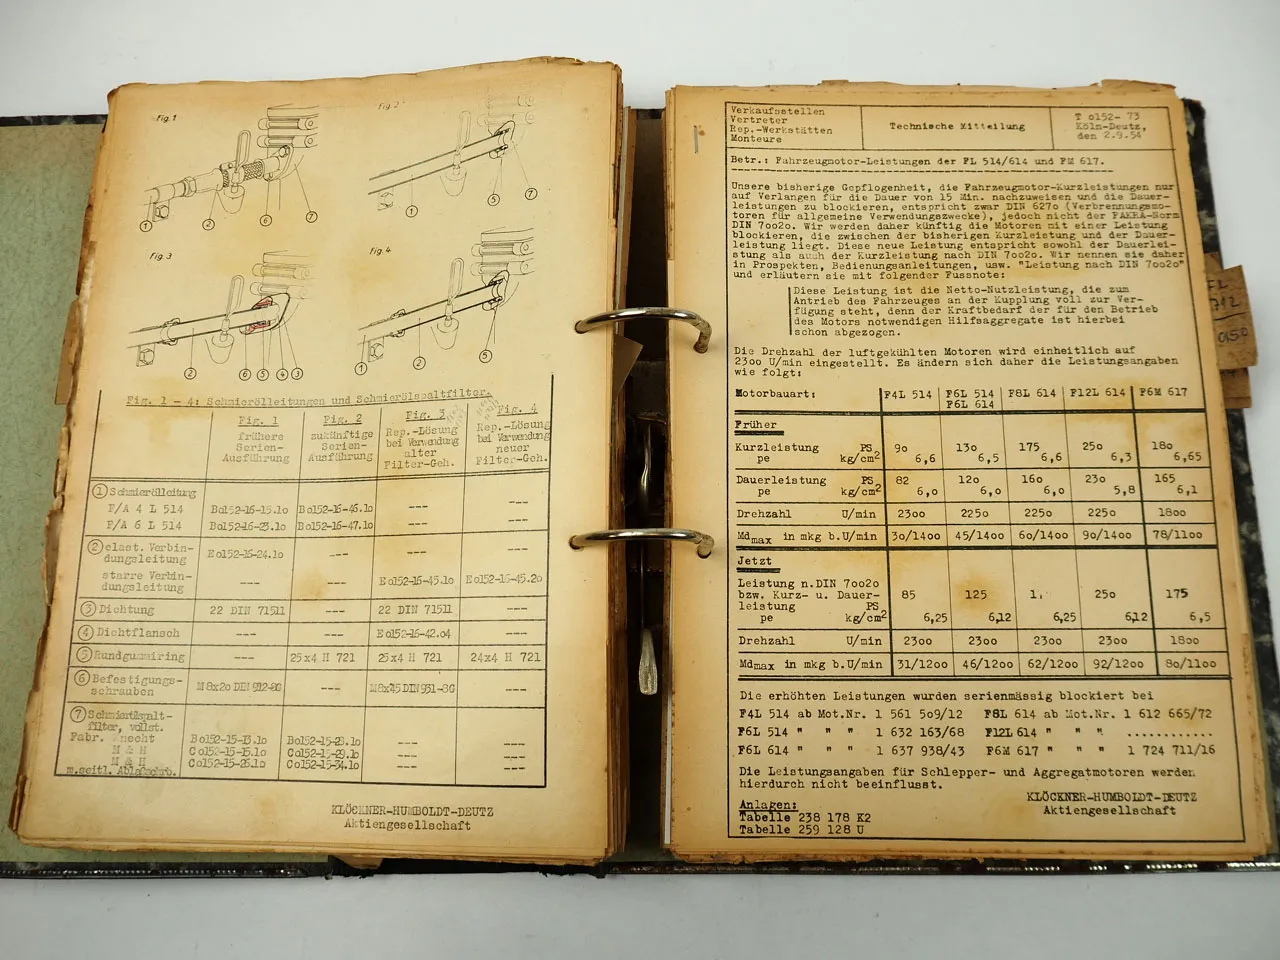 Fig.1
Fig.2
1 2 6 7
1 5 7
Fig.3
Fig.4
2 6 5 4 3
1 2 5
Fig. 1 - 4: Schmierölleitungen und Schmierölspaltfilter.
Fig. 1 Fig. 2 Fig. 3 Fig. 4
frühere zukünftige Rep.-Lösung Rep.-Lösung
Serien- Serien- bei Verwendung bei Verwendung
Ausführung Ausführung alter neuer
Filter-Geh. Filter-Geh.
1 Schmierölleitung ---
F/A 4 L 514 Bo152-16-15.1o Bo152-16-46.1o ---
F/A 6 L 514 Bo152-16-23.1o Bo152-16-47.1o --- ---
2 elast. Verbin-
dungsleitung Eo152-16-24.1o --- --- ---
starre Verbin-
dungsleitung --- Eo152-16-45.1o Eo152-16-45.2o
3 Dichtung 22 DIN 71511 --- 22 DIN 71511 ---
4 Dichtflansch --- --- Eo152-16-42.o4 ---
5 Rundgummiring --- 25x4 H 721 25x4 H 721 24x4 H 721
6 Befestigungs-
schrauben M8x2o DIN --- ---
7 Schmierölspalt-
filter, vollst.
Fabr. Knecht Bo152-15-13.1o Bo152-15-23.1o --- ---
M & H Co152-15-15.1o Co152-15-29.1o --- ---
M & H Co152-15-26.1o Co152-15-34.1o --- ---
m.seitl. Ablaßschrb.
KLÖCKNER-HUMBOLDT-DEUTZ
Aktiengesellschaft
Verkaufsstellen
Vertreter
Rep.-Werkstätten
Monteure
Technische Mitteilung
T o152- 73
Köln-Deutz,
den 2.9.54
Betr.: Fahrzeugmotor-Leistungen der FL 514/614 und FM 617.
Unsere bisherige Gepflogenheit, die Fahrzeugmotor-Kurzleistungen nur
auf Verlangen für die Dauer von 15 Min. nachzuweisen und die Dauer-
leistungen zu blockieren, entspricht zwar DIN 627o (Verbrennungsmo-
toren für allgemeine Verwendungszwecke), jedoch nicht der FAKRA-Norm
DIN 7oo2o. Wir werden daher künftig die Motoren mit einer Leistung
blockieren, die zwischen der bisherigen Kurzleistung und der Dauer-
leistung liegt. Diese neue Leistung entspricht sowohl der Dauerlei-
stung als auch der Kurzleistung nach DIN 7oo2o. Wir nennen sie daher
in Prospekten, Bedienungsanleitungen, usw. "Leistung nach DIN 7oo2o"
und erläutern sie mit folgender Fussnote:
Diese Leistung ist die Netto-Nutzleistung, die zum
Antrieb des Fahrzeuges an der Kupplung voll zur Ver-
fügung steht, denn der Kraftbedarf der für den Betrieb
des Motors notwendigen Hilfsaggregate ist hierbei
schon abgezogen.
Die Drehzahl der luftgekühlten Motoren wird einheitlich auf
23oo U/min eingestellt. Es ändern sich daher die Leistungsangaben
wie folgt:
Motorbauart: F4L 514 F6L 514 F8L 614 F12L 614 F6M 617
F6L 614
Früher
Kurzleistung PS 9o 13o 175 25o 18o
pe kg/cm2 6,6 6,5 6,6 6,3 6,65
Dauerleistung PS 82 12o 16o 23o 165
pe kg/cm2 6,o 6,o 6,o 5,8 6,1
Drehzahl U/min 23oo 225o 225o 225o 18oo
Mdmax in mkg b.U/min 3o/14oo 45/14oo 6o/14oo 9o/14oo 78/11oo
Jetzt
Leistung n.DIN 7oo2o
bzw. Kurz- u. Dauer- 85 125 25o 175
leistung PS
pe kg/cm2 6,25 6,12 6,25 6,12 6,5
Drehzahl U/min 23oo 23oo 23oo 23oo 18oo
Mdmax in mkg b.U/min 31/12oo 46/12oo 62/12oo 92/12oo 8o/11oo
Die erhöhten Leistungen wurden serienmässig blockiert bei
F4L 514 ab Mot.Nr. 1 561 5o9/12 F8L 614 ab Mot.Nr. 1 612 665/72
F6L 514 " " " 1 632 163/68 F12L 614 " " " ............
F6L 614 " " " 1 637 938/43 F6M 617 " " " 1 724 711/16
Die Leistungsangaben für Schlepper- und Aggregatmotoren werden
hierdurch nicht beeinflusst.
KLÖCKNER-HUMBOLDT-DEUTZ
Aktiengesellschaft
Anlagen:
Tabelle 238 178 K2
Tabelle 259 128 U
FL
712